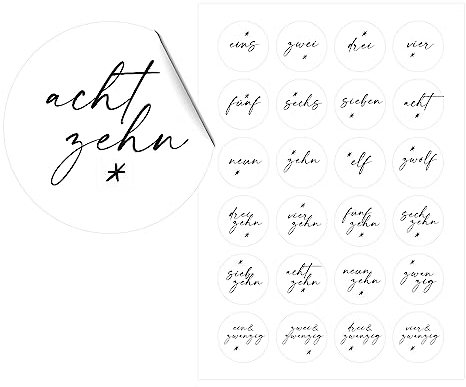 acht
zehn
*
eins
zwei
drei
vier
fünf
sechs
sieben
acht
neun
zehn
elf
zwölf
drei
zehn
vier
zehn
fünf
zehn
sech
zehn
sieb
zehn
acht
zehn
neun
zehn
zwan
zig
ein&
zwanzig
zwei&
zwanzig
drei&
zwanzig
vier&
zwanzig